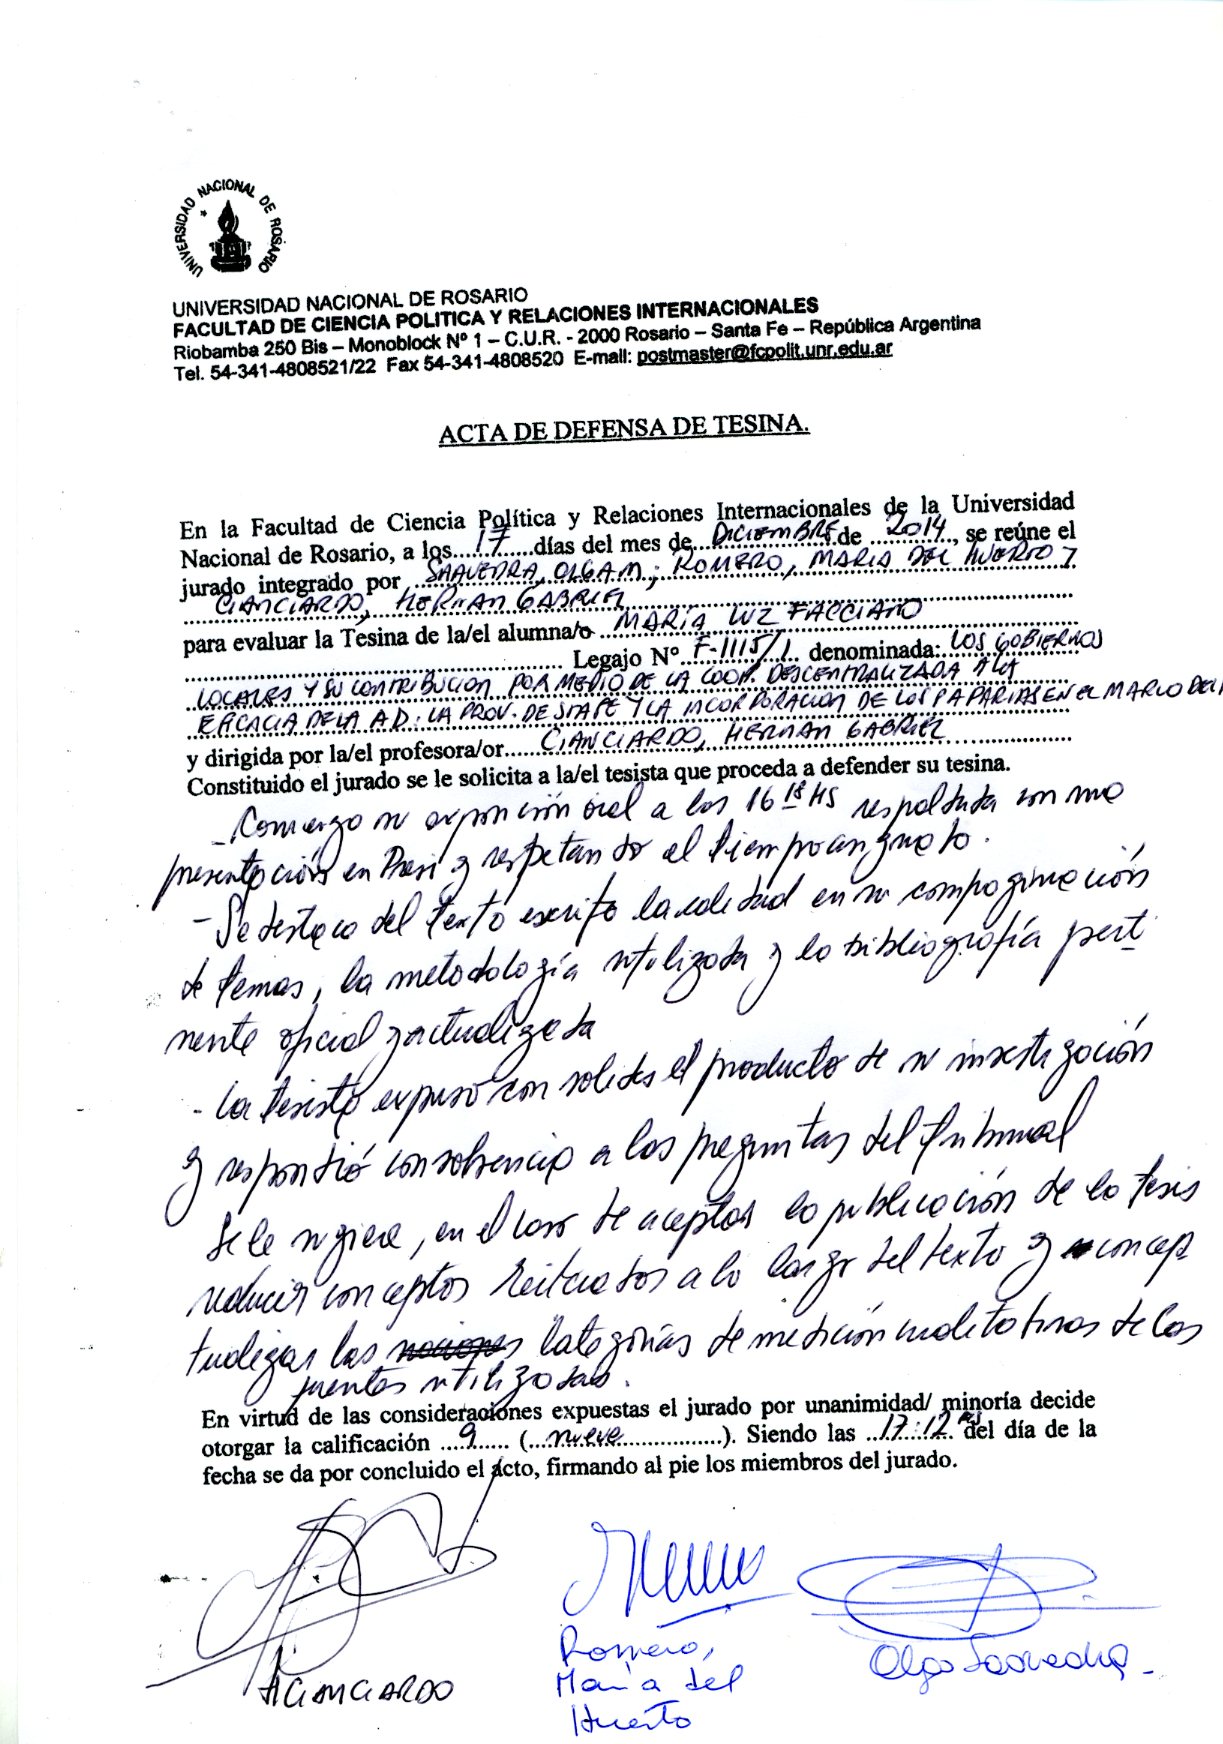 UNIVERSIDAD NACIONAL DE ROSARIO
UNIVERSIDAD NACIONAL DE ROSARIO
FACULTAD DE CIENCIA POLITICA Y RELACIONES INTERNACIONALES
Riobamba 250 Bis – Monoblock Nº 1 – C.U.R. - 2000 Rosario – Santa Fe – República Argentina
Tel. 54-341-4808521/22 Fax 54-341-4808520 E-mail: postmaster@fcpolit.unr.edu.ar
ACTA DE DEFENSA DE TESINA.
En la Facultad de Ciencia Política y Relaciones Internacionales de la Universidad
Nacional de Rosario, a los....17......días del mes de...DICIEMBRE de ...2014..., se reúne el
jurado integrado por SAAVEDRA, OLGA M; ROMERO, MARIA DEL HUERTO Y
CIANCIARDO, HERNAN GABRIEL
para evaluar la Tesina de la/el alumna/o MARÍA LUZ FACCIANO
Legajo Nº F-1115/1 denominada: LOS GOBIERNOS
LOCALES Y SU CONTRIBUCION POR MEDIO DE LA COOP. DESCENTRALIZADA A LA
EFICACIA DE LA A.D.: LA PROV. DE STA FE Y LA INCORPORACION DE LOS EN EL MARCO DE
y dirigida por la/el profesora/or...... CIANCIARDO, HERNAN GABRIEL
Constituido el jurado se le solicita a la/el tesista que proceda a defender su tesina.
_Comenzo su exposición oral a las 16 18 HS respaldada con una
presentación en Presi y respetando el tiempo asignado.
- Se destaca del texto escrito la calidad en su compaginación
de temas, la metodología utilizada y la bibliografía perti
nente oficial y actualizada
- La tesista expuso con solidez el producto de su investigación
y respondió con solvencia a las preguntas del tribunal
Se le sugiere, en el caso de aceptar la publicación de la tesis
reducir conceptos reiterados a lo largo del texto y concep
tualizar las categorías de medición cualitativas de las
fuentes utilizadas.
En virtud de las consideraciones expuestas el jurado por unanimidad/ minoría decide
otorgar la calificación ....9...... (...nueve...................). Siendo las ..17:12 hs del día de la
fecha se da por concluido el acto, firmando al pie los miembros del jurado.
H CIANCIARDO
Romero,
María del
Huerto
Olga Saavedra